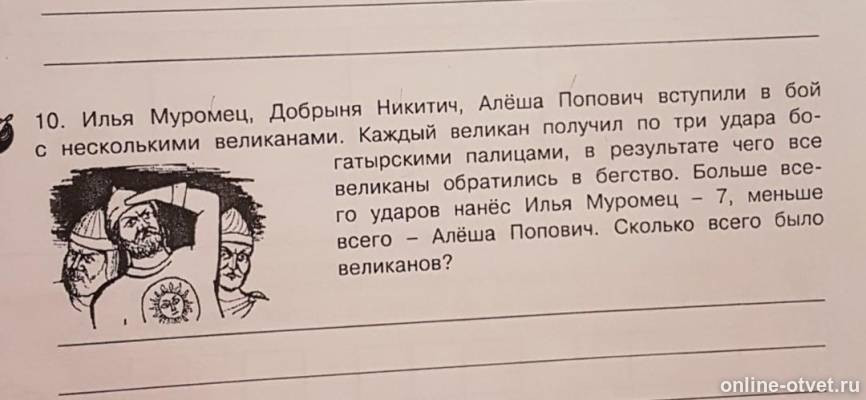 10. Илья Муромец, Добрыня Никитич, Алёша Попович вступили в бой
с несколькими великанами. Каждый великан получил по три удара бо-
гатырскими палицами, в результате чего все
великаны обратились в бегство. Больше все-
го ударов нанёс Илья Муромец – 7, меньше
всего – Алёша Попович. Сколько всего было
великанов?
online-otvet.ru